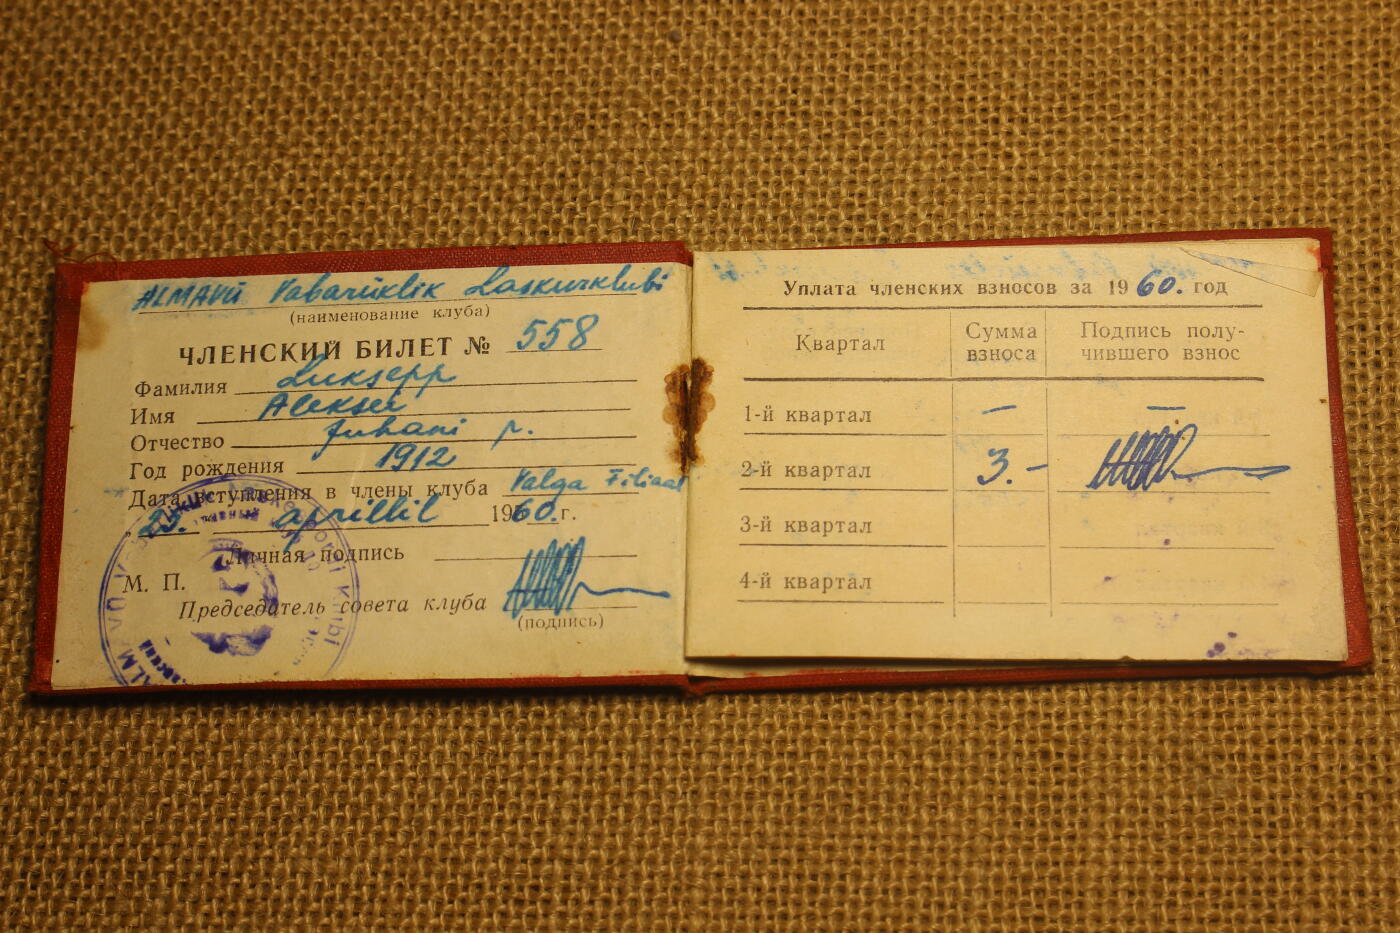 ALMAVÜ Vabariiklik Laskurklubi
(наименование клуба)
ЧЛЕНСКИЙ БИЛЕТ № 558
Фамилия Luksepp
Имя Aleksei
Отчество Juhani p.
Год рождения 1912
Дата вступления в члены клуба Valga Filiaal
„25. aprillil 1960. г.
Личная подпись
М. П.
Председатель совета клуба
(подпись)
Уплата членских взносов за 1960. год
Квартал
Сумма взноса
Подпись полу-
чившего взнос
1-й квартал – –
2-й квартал 3.-
3-й квартал
4-й квартал